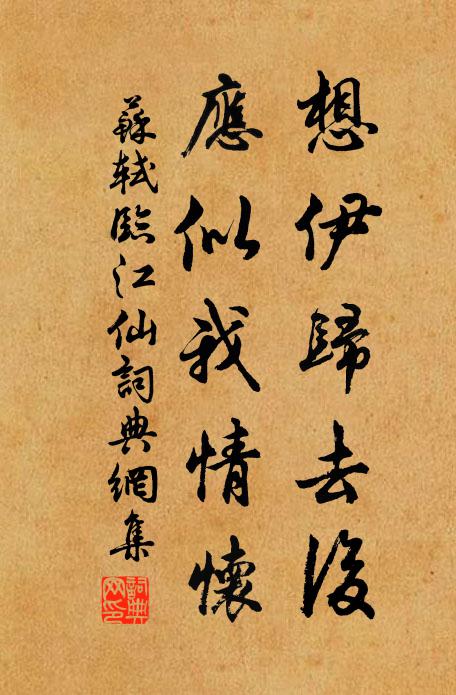 想伊歸去後
應似我情懷
蘇軾臨江仙詞典網集
詞典
网印